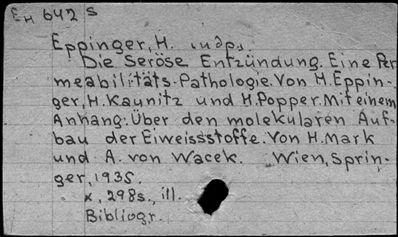 EH 642 S
Eppinger, H. iudps.
Die Seröse Entzündung. Eine Per
meabilitäts-Pathologie. Von H. Eppin-
ger, H. Kaunitz und H. Popper. Mit einem
Anhang: Über den molekularen Auf-
bau der Eiweissstoffe. Von H. Mark
und A. von Wacek. Wien, Sprin-
ger, 1935.
x, 298s., ill.
Bibliogr.